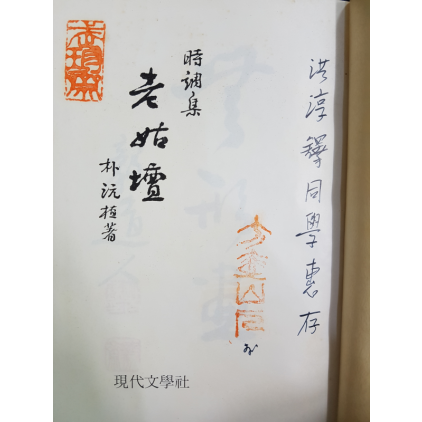 洪淳鐸同學惠存
時調集
老姑壇
朴沅植著
現代文學社